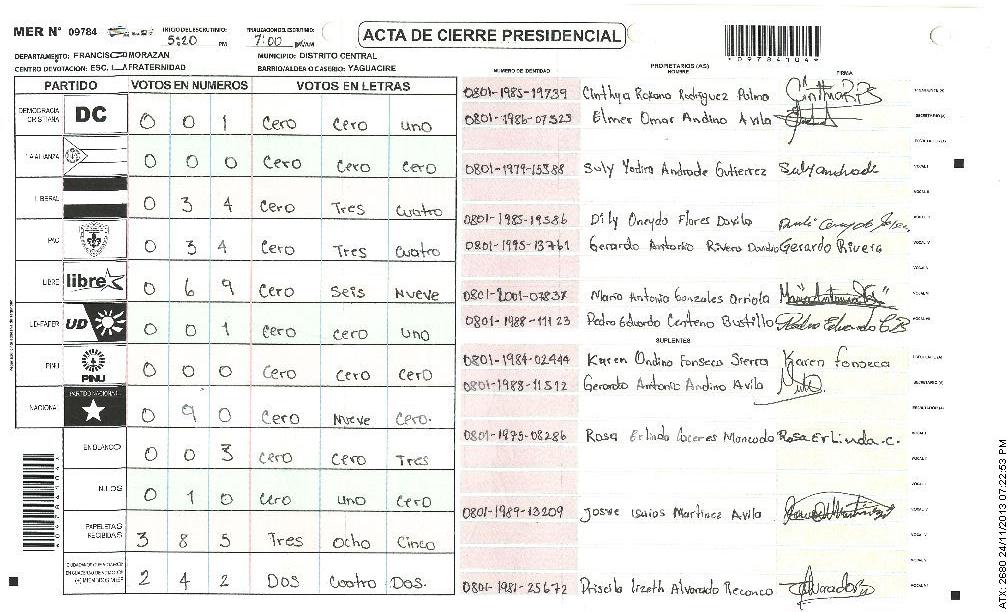 MER N° 09784
INICIO DEL ESCRUTINIO: 5:20 PM
FINALIZACION DEL ESCRUTINIO: 7:00
ACTA DE CIERRE PRESIDENCIAL
DEPARTAMENTO: FRANCISCO MORAZAN
MUNICIPIO: DISTRITO CENTRAL
CENTRO DE VOTACION: ESC. LA FRATERNIDAD
BARRIO/ALDEA O CASERIO: YAGUACIRE
PARTIDO VOTOS EN NUMEROS VOTOS EN LETRAS
DEMOCRACIA CRISTIANA DC 0 0 1 Cero Cero uno
LA ALIANZA 0 0 0 Cero Cero Cero
LIBERAL 0 3 4 Cero Tres Cuatro
PAC 0 3 4 Cero Tres Cuatro
LIBRE libre 0 6 9 Cero Seis Nueve
UD-FAPER UD 0 0 1 Cero Cero uno
PINU PINU 0 0 0 Cero Cero Cero
NACIONAL PARTIDO NACIONAL 0 9 0 Cero Nueve Cero.
EN BLANCO 0 0 3 Cero Cero Tres
NULOS 0 1 0 Cero uno Cero
PAPELETAS RECIBIDAS 3 8 5 Tres Ocho Cinco
2 4 2 Dos Cuatro Dos.
*09784104*
NUMERO DE IDENTIDAD
PROPIETARIOS (AS)
NOMBRE
FIRMA
0801-1985-19739 Cinthya Roxana Rodriguez Palma
0801-1986-07523 Elmer Omar Andino Avila
0801-1979-15388 Suly Yadira Andrade Gutierrez Suly andrade
0801-1985-19586 Dily Oneyda Flores Davila
0801-1995-13761 Gerardo Antonio Rivera Gerardo Rivera
0801-2001-07837 Mario Antonio Gonzales Arriola
0801-1988-11123 Pedro Eduardo Centeno Bustillo Pedro Eduardo C B
SUPLENTES
0801-1984-02444 Karen Ondina Fonseca Sierra Karen fonseca
0801-1988-11512 Gerardo Antonio Andino Avila
0801-1975-08286 Rosa Erlinda Caceres Moncada Rosa Erlinda.c.
0801-1989-13209 Josue Isaias Martinez Avila
0801-1981-25672 Priscila Lizeth Alvarado Reconco
ATX: 2680 24/11/2013 07:22:53 PM